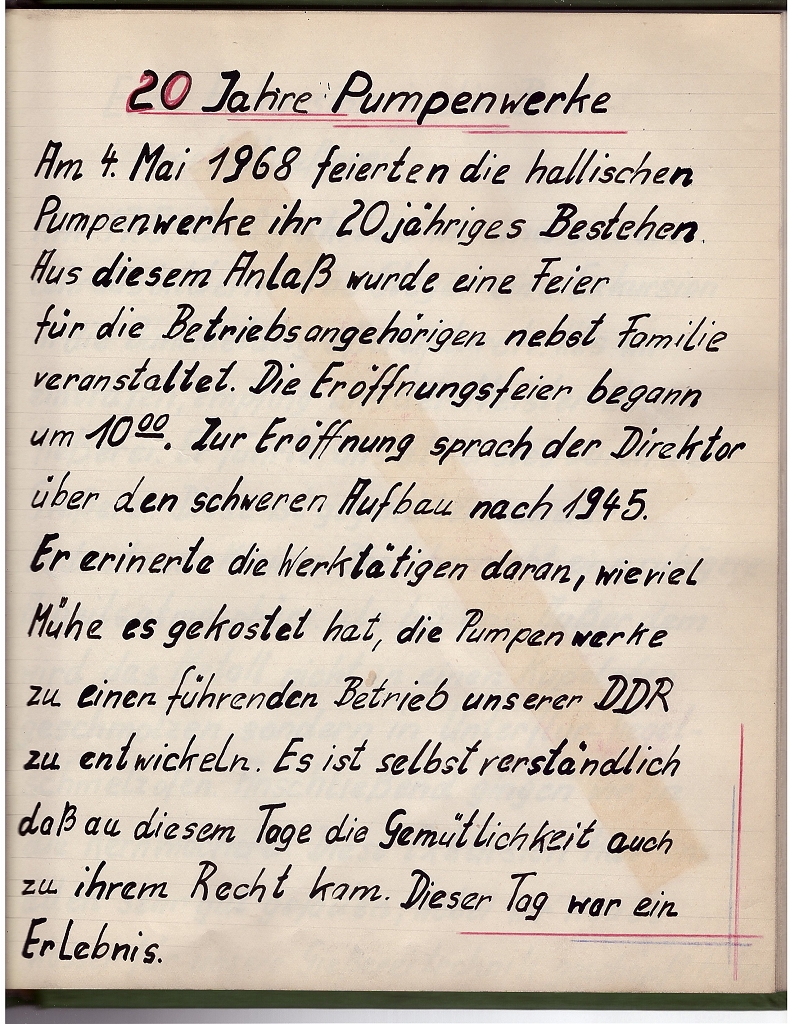 20 Jahre Pumpenwerke
Am 4. Mai 1968 feierten die hallischen
Pumpenwerke ihr 20jähriges Bestehen.
Aus diesem Anlaß wurde eine Feier
für die Betriebsangehörigen nebst Familie
veranstaltet. Die Eröffnungsfeier begann
um 10⁰⁰. Zur Eröffnung sprach der Direktor
über den schweren Aufbau nach 1945.
Er erinerte die Werktätigen daran, wieviel
Mühe es gekostet hat, die Pumpenwerke
zu einen führenden Betrieb unserer DDR
zu entwickeln. Es ist selbstverständlich
daß au diesem Tage die Gemütlichkeit auch
zu ihrem Recht kam. Dieser Tag war ein
Erlebnis.